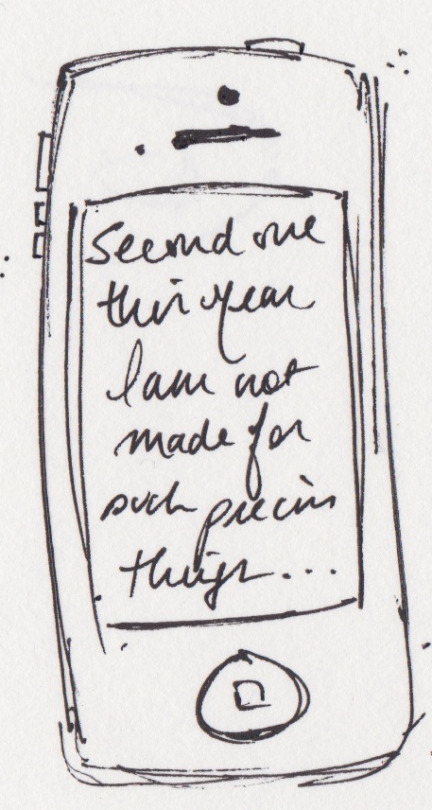 Second one
this year
I am not
made for
such precious
things...